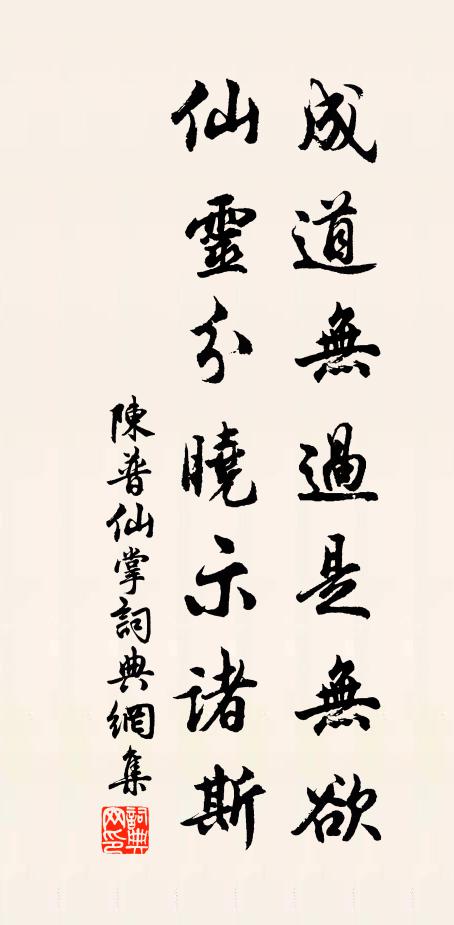 成道無過是無欲
仙靈分曉示諸斯
陳普仙掌詞典網集
詞典網印